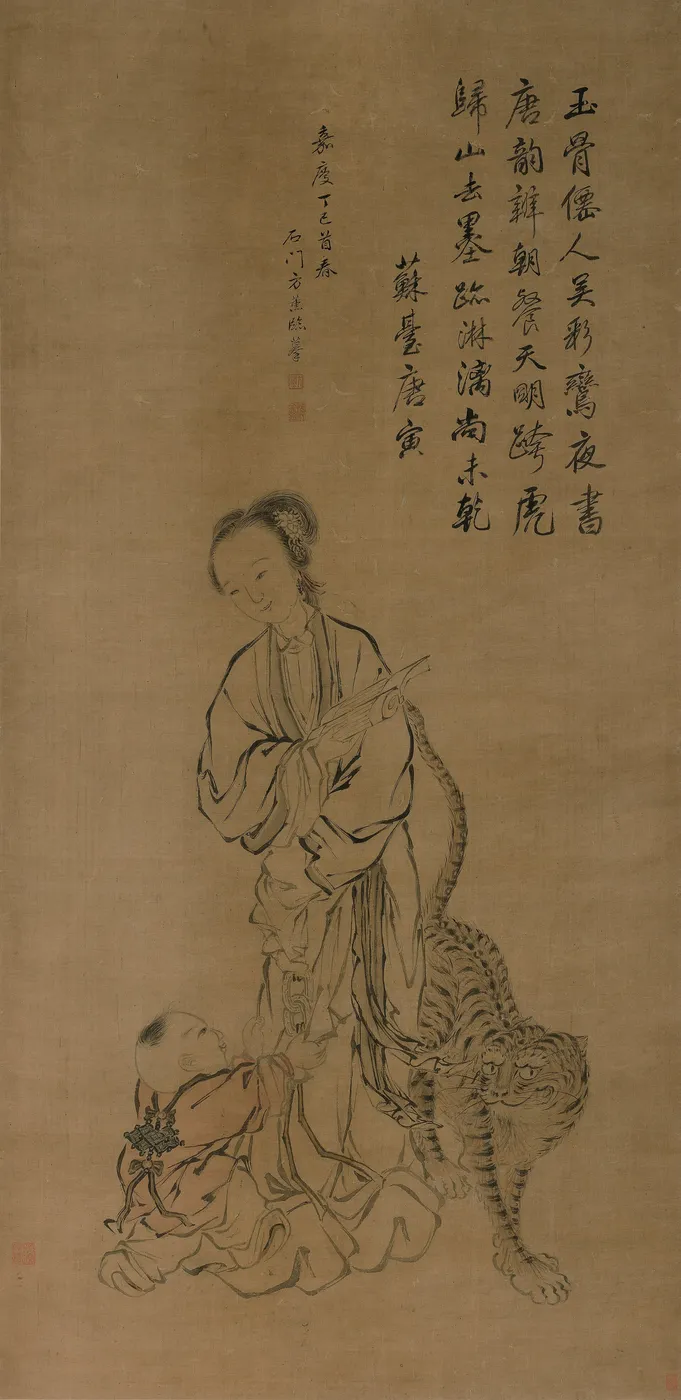 玉骨僊人吴彩鸞夜書
唐韵辦朝餐天明跨虎
歸山去墨跡淋漓尚未乾
蘇臺唐寅
嘉慶丁巳首春
石门方薰臨摹